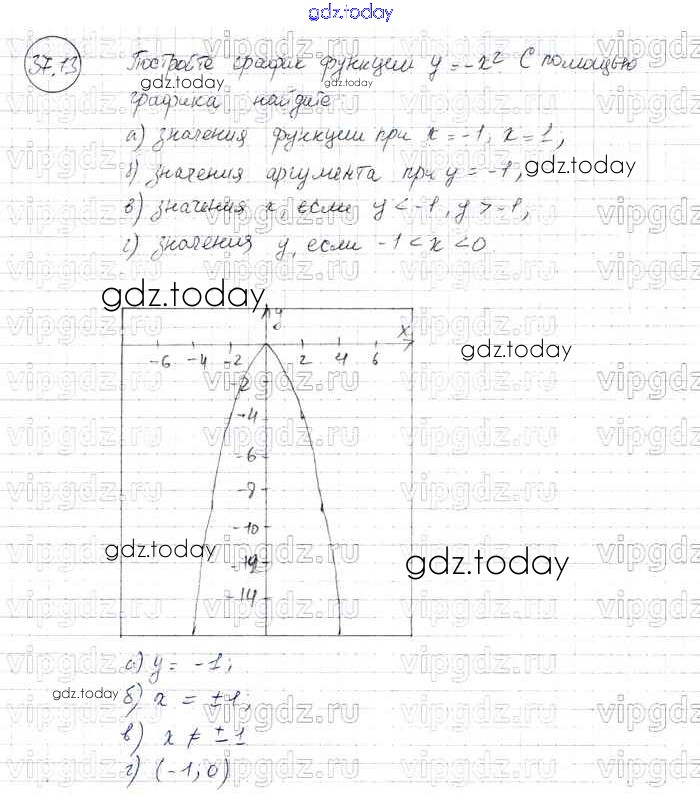 gdz.today
37.13 Постройте график функции y = -x². С помощью
графика найдите:
а) значения функции при x = -1, x = 1;
б) значения аргумента при y = -1;
в) значения x, если y < -1, y > -1;
г) значения y, если -1 < x < 0.
gdz.today
y
x
-6 -4 -2 2 4 6
-2
-4
-6
-8
-10
-12
-14
а) y = -1;
б) x = ±1;
в) x ≠ ±1
г) (-1; 0)
gdz.today
gdz.today
gdz.today
gdz.today
gdz.today
gdz.today
vipgdz.ru